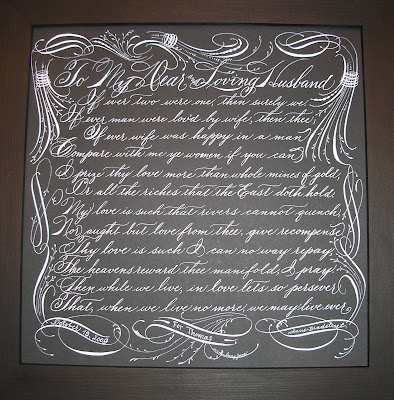 To My Dear and Loving Husband
If ever two were one, then surely we.
If ever man were lov'd by wife, then thee;
If ever wife was happy in a man,
Compare with me ye women if you can.
I prize thy love more than whole mines of gold,
Or all the riches that the East doth hold.
My love is such that rivers cannot quench,
Nor aught but love from thee, give recompense.
Thy love is such I can no way repay,
The heavens reward thee manifold, I pray.
Then while we live, in love lets so persever,
That, when we live no more, we may live ever.
October 10, 2009
For Thomas
Anne Bradstreet